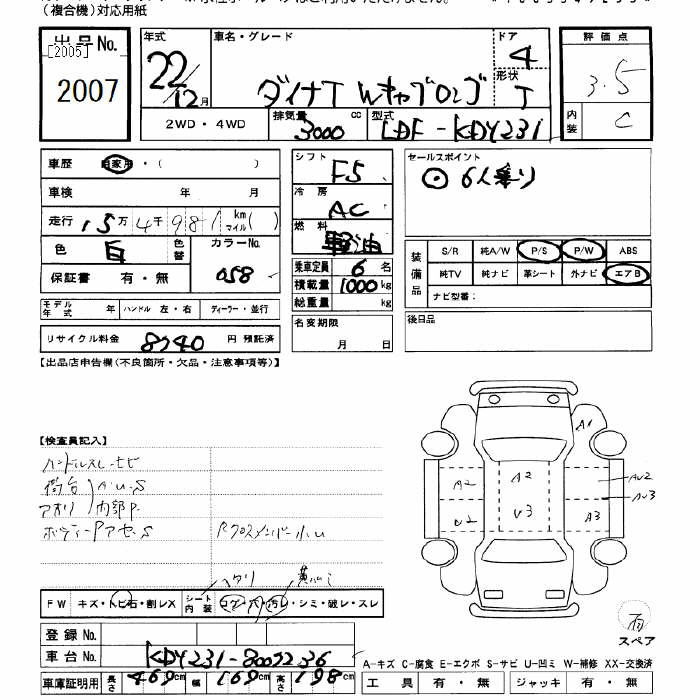 (複合機)対応用紙
出品No.
[2005]
2007
年式
22年
12月
車名・グレード
ダイナT Wキャブロング
ドア
4
形状
T
評価点
3.5
内装
C
2WD・4WD
排気量
3000
cc
型式
LDF-KDY231
車歴
自家用・( )
車検
年 月
走行
15万4千981
km
マイル( )
色
白
色替
カラーNo.
058
保証書
有・無
シフト
F5
冷房
AC
燃料
軽油
乗車定員
6名
積載量
1000kg
総重量
kg
セールスポイント
6人乗り
装備品
S/R 純A/W P/S P/W ABS
純TV 純ナビ 革シート 外ナビ エアB
ナビ型番:
モデル年式
年
ハンドル 左・右
ディーラー・並行
リサイクル料金
8740
円 預託済
名変期限
月 日
後日品
【出品店申告欄(不良箇所・欠品・注意事項等)】
【検査員記入】
ハンドルスレ
荷台
アオリ
内部P
FW
キズ・トビ石・割レX
シート内装
コゲ・穴・汚レ・シミ・破レ・スレ
登録No.
車台No.
KDY231-8005236
車庫証明用
長さ
469cm
幅
169cm
高さ
198cm
A1
A2
A2
U2
U3
A3
AU2
AU3
スペア
A-キズ C-腐食 E-エクボ S-サビ U-凹ミ W-補修 XX-交換済
工具
有・無
ジャッキ
有・無